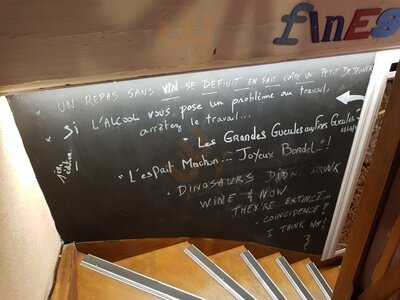 fINES
" UN REPAS SANS VIN SE DEFINIT EN FAIT COMME UN PETIT DEJEUNER
" Si L'ALCOOL VOUS pose un problème au travail,
arrêtez le travail...
" Les Grandes Gueules aux Fines Gueules
" L'esprit Machin... Joyeux Bordel !
" DINOSAURS DIDN'T DRINK
WINE & NOW
THEY'RE EXTINCT...
COINCIDENCE?
I THINK NOT